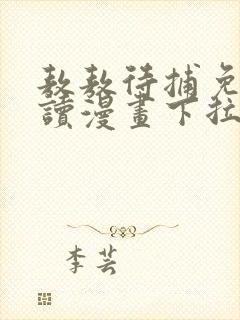 敖敖待捕免
讀漫畫下拉
李芸